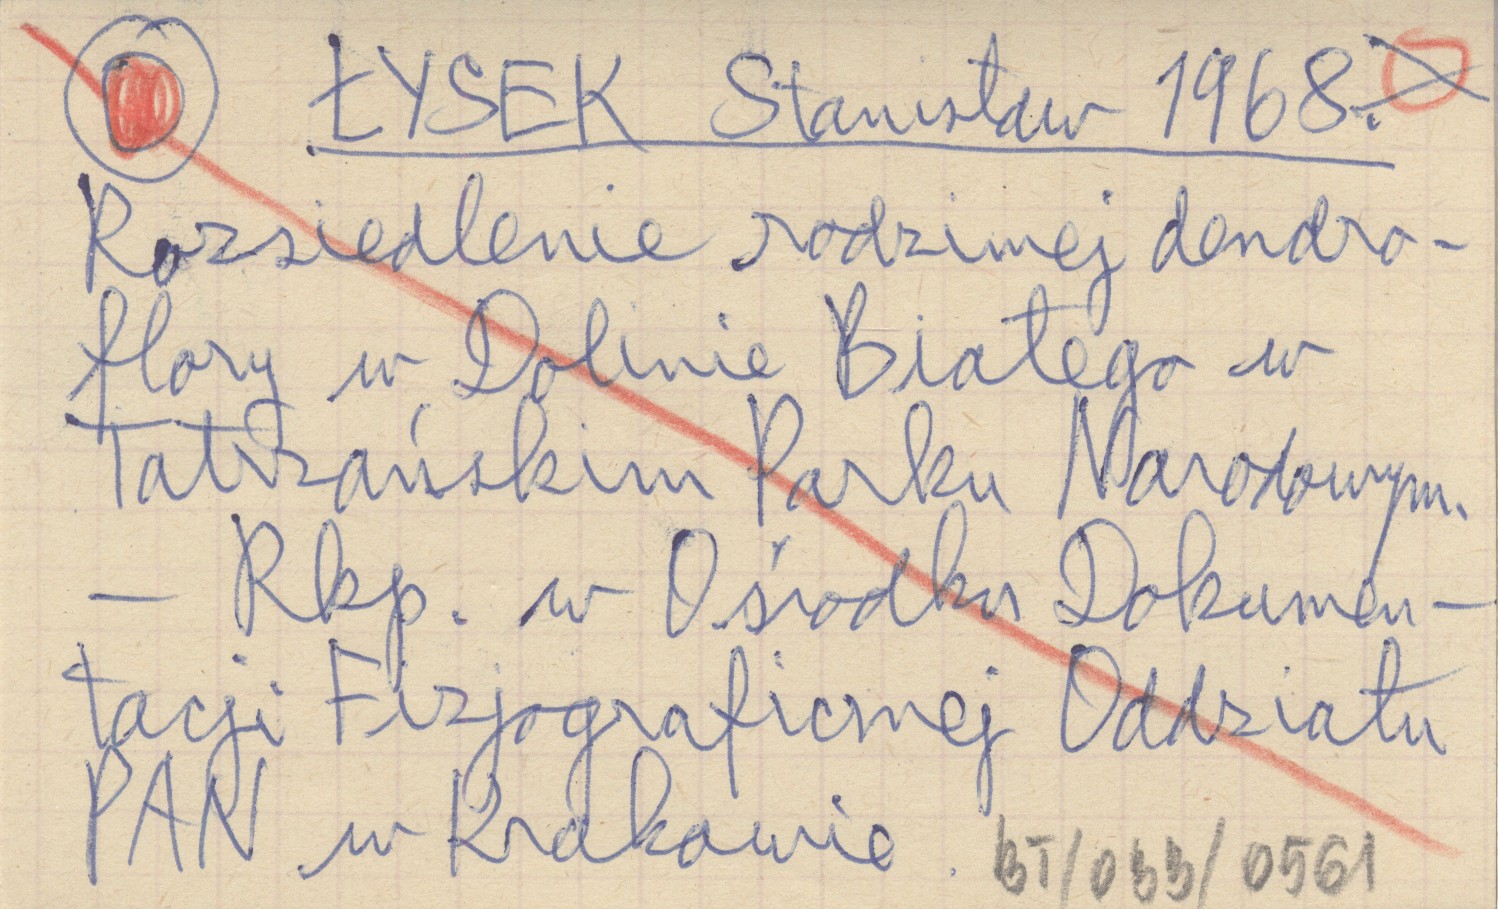 ŁYSEK Stanisław 1968.
Rozsiedlenie rodzimej dendro-
flory w Dolinie Białego w
Tatrzańskim Parku Narodowym.
— Rkp. w Ośrodku Dokumen-
tacji Fizjograficznej Oddziału
PAN w Krakowie.
BT/033/0561